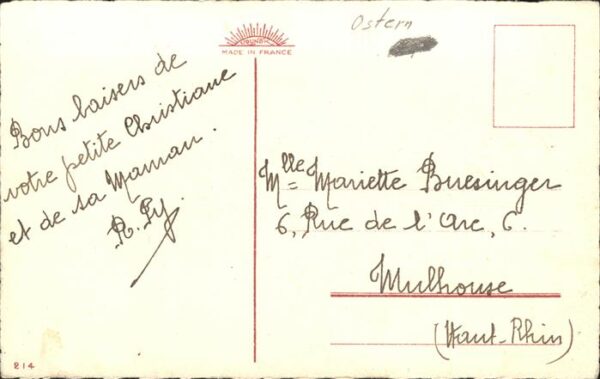 Ostern
MADE IN FRANCE
Bons baisers de
votre petite Christiane
et de sa Maman.
R. Py.
Mlle Mariette Buesinger
6, Rue de l'Arc, 6.
Mulhouse
(Haut-Rhin)
814